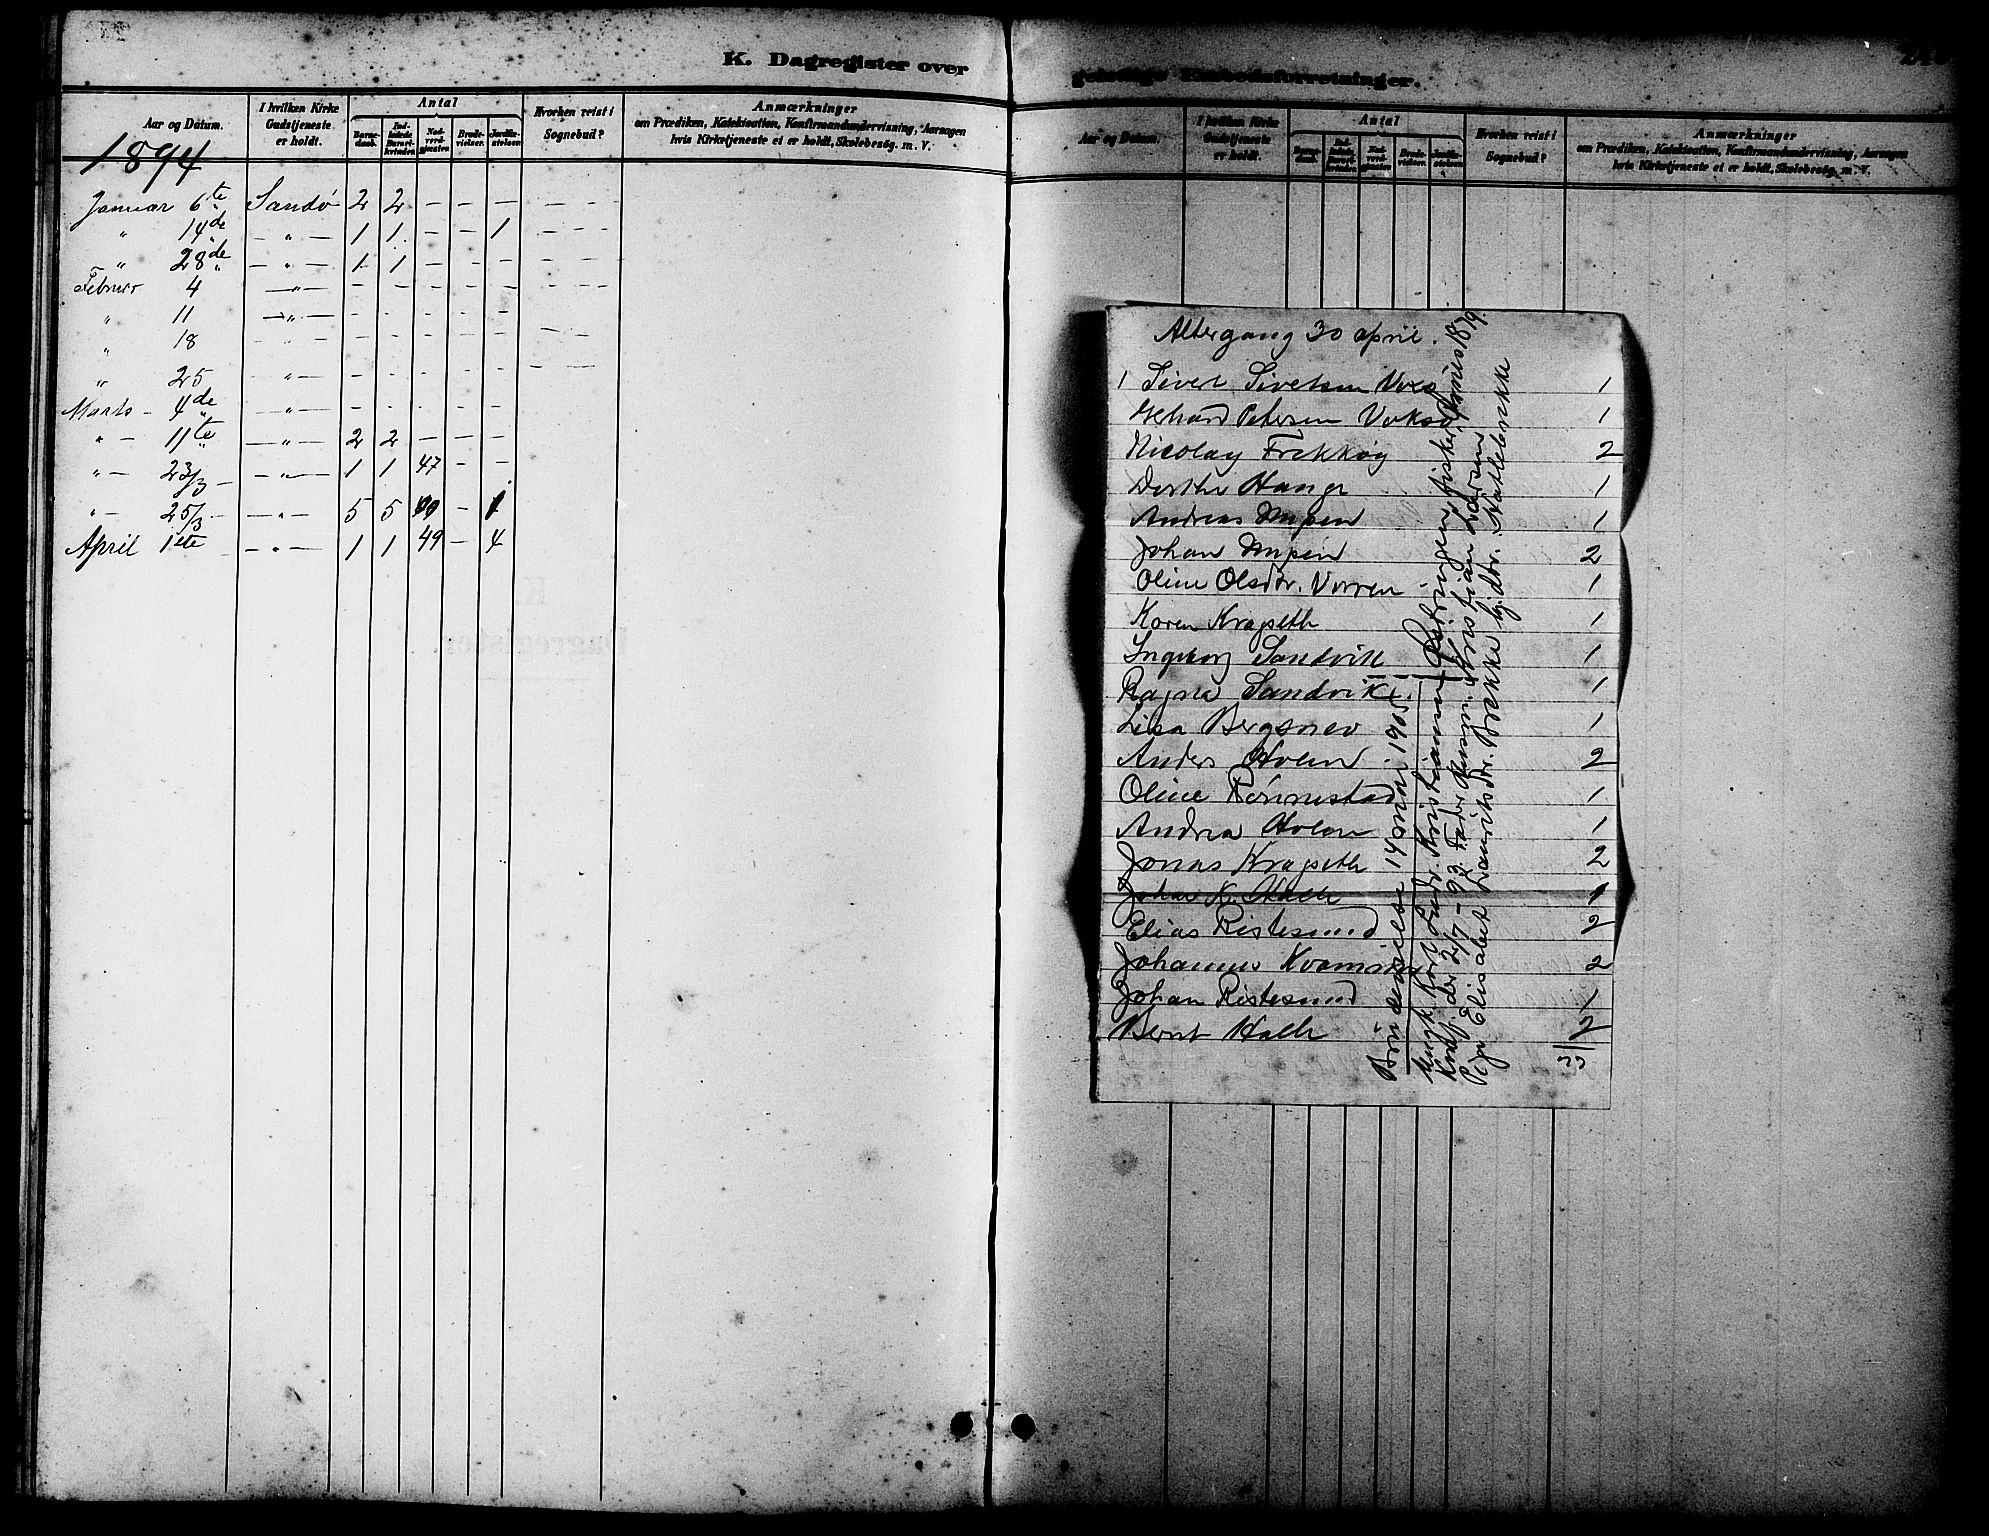 K. Dagregister over geistlige Embedsforretninger.
Aar og Datum.
I hvilken Kirke Gudstjeneste er holdt.
Antal
Barnedaab. Indledede Barselkvinder. Nadverdgjæster. Brudevielser. Jordfæstelser.
Hvorhen reist i Sognebud?
Anmærkninger
om Prædiken, Katekisation, Konfirmandundervisning, Aarsagen
hvis Kirketjeneste ei er holdt, Skolebesøg. m. V.
1894
Januar 6te Sandø 2 2 – – – – – –
" 14de – " – 1 1 – – 1 – – –
" 28de – " – 1 1 – – – – – –
Februar 4 – " – – – – – – – – –
" 11 – " – – – – – –
" 18 – " – – – – – – – – –
" 25 – " – – – – – – – – –
Marts – 4de – " – – – – – –
" – 11te – " – 2 2 – – –
" – 23/3 – – " – 1 1 47 – –
" – 25/3 – – " – 5 5 – 1
April 1ste – " – 1 1 49 – 4
Aar og Datum.
I hvilken Kirke Gudstjeneste er holdt.
Antal
Barnedaab. Indledede Barselkvinder. Nadverdgjæster. Brudevielser. Jordfæstelser.
Hvorhen reist i Sognebud?
Anmærkninger
om Prædiken, Katekisation, Konfirmandundervisning, Aarsagen
hvis Kirketjeneste ei er holdt, Skolebesøg. m. V.
Altergang 30 april.
1 Sivert Sivetsen 1
Petersen 1
Nicolay 2
Hauge 1
Andreas Myren 1
Johan Myren 2
Oline Olsdtr. Vorren 1
Karen Kragseth 1
Ingeborg Sandvik 1
Ragna Sandvik 1
Lisa Bergsnev 1
Anders Holen 2
Oline Rønnestad 1
Andrea Holen 1
Jonas Kragseth 2
Johan K. Halle 1
Elias Ristesund 2
Johannes 2
Johan Ristesund 1
Bernt Halle 2
Brudevielse 14 1905
Ungk. Karl Ludv. Kristiansen fisker, 1879.
Konf. den 2/7 – 93. Fader Kristian Larsen
Pige Elisabet Lauritsdtr. Brekke